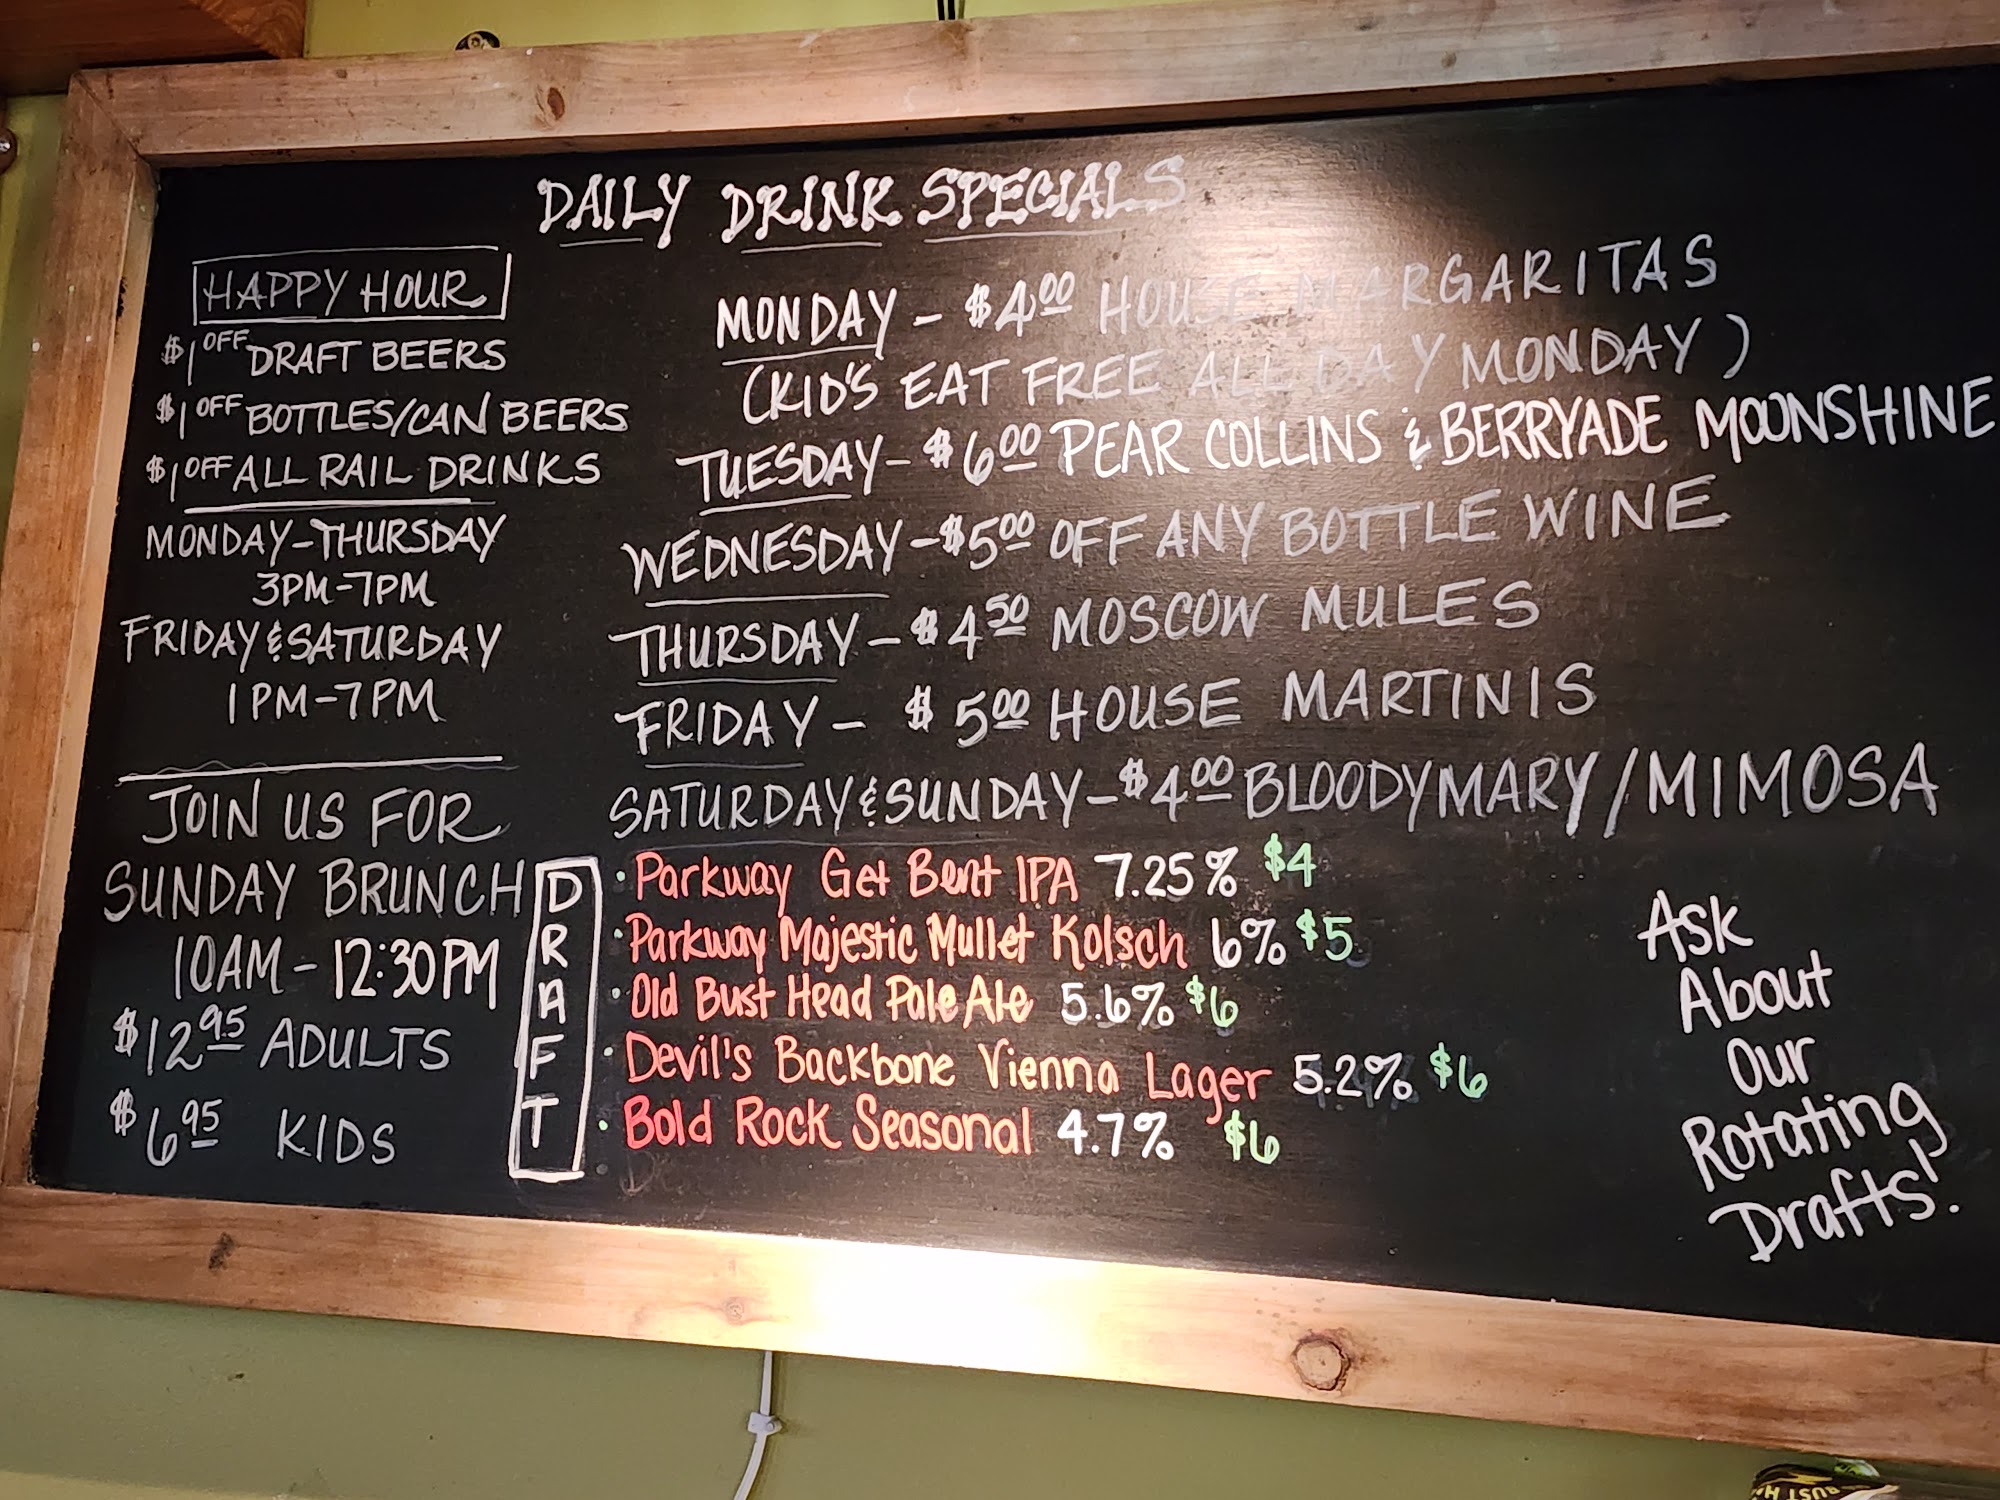 DAILY DRINK SPECIALS
HAPPY HOUR
$1 OFF DRAFT BEERS
$1 OFF BOTTLES/CAN BEERS
$1 OFF ALL RAIL DRINKS
MONDAY-THURSDAY
3PM-7PM
FRIDAY & SATURDAY
1PM-7PM
JOIN US FOR
SUNDAY BRUNCH
10AM-12:30PM
$12.95 ADULTS
$6.95 KIDS
MONDAY - $4.00 HOUSE MARGARITAS
(KID'S EAT FREE ALL DAY MONDAY)
TUESDAY - $6.00 PEAR COLLINS & BERRYADE MOONSHINE
WEDNESDAY - $5.00 OFF ANY BOTTLE WINE
THURSDAY - $4.50 MOSCOW MULES
FRIDAY - $5.00 HOUSE MARTINIS
SATURDAY & SUNDAY - $4.00 BLOODYMARY/MIMOSA
DRAFT
· Parkway Get Bent IPA 7.25% $4
· Parkway Majestic Mullet Kolsch 6% $5
· Old Bust Head Pale Ale 5.6% $6
· Devil's Backbone Vienna Lager 5.2% $6
· Bold Rock Seasonal 4.7% $6
Ask
About
Our
Rotating
Drafts!